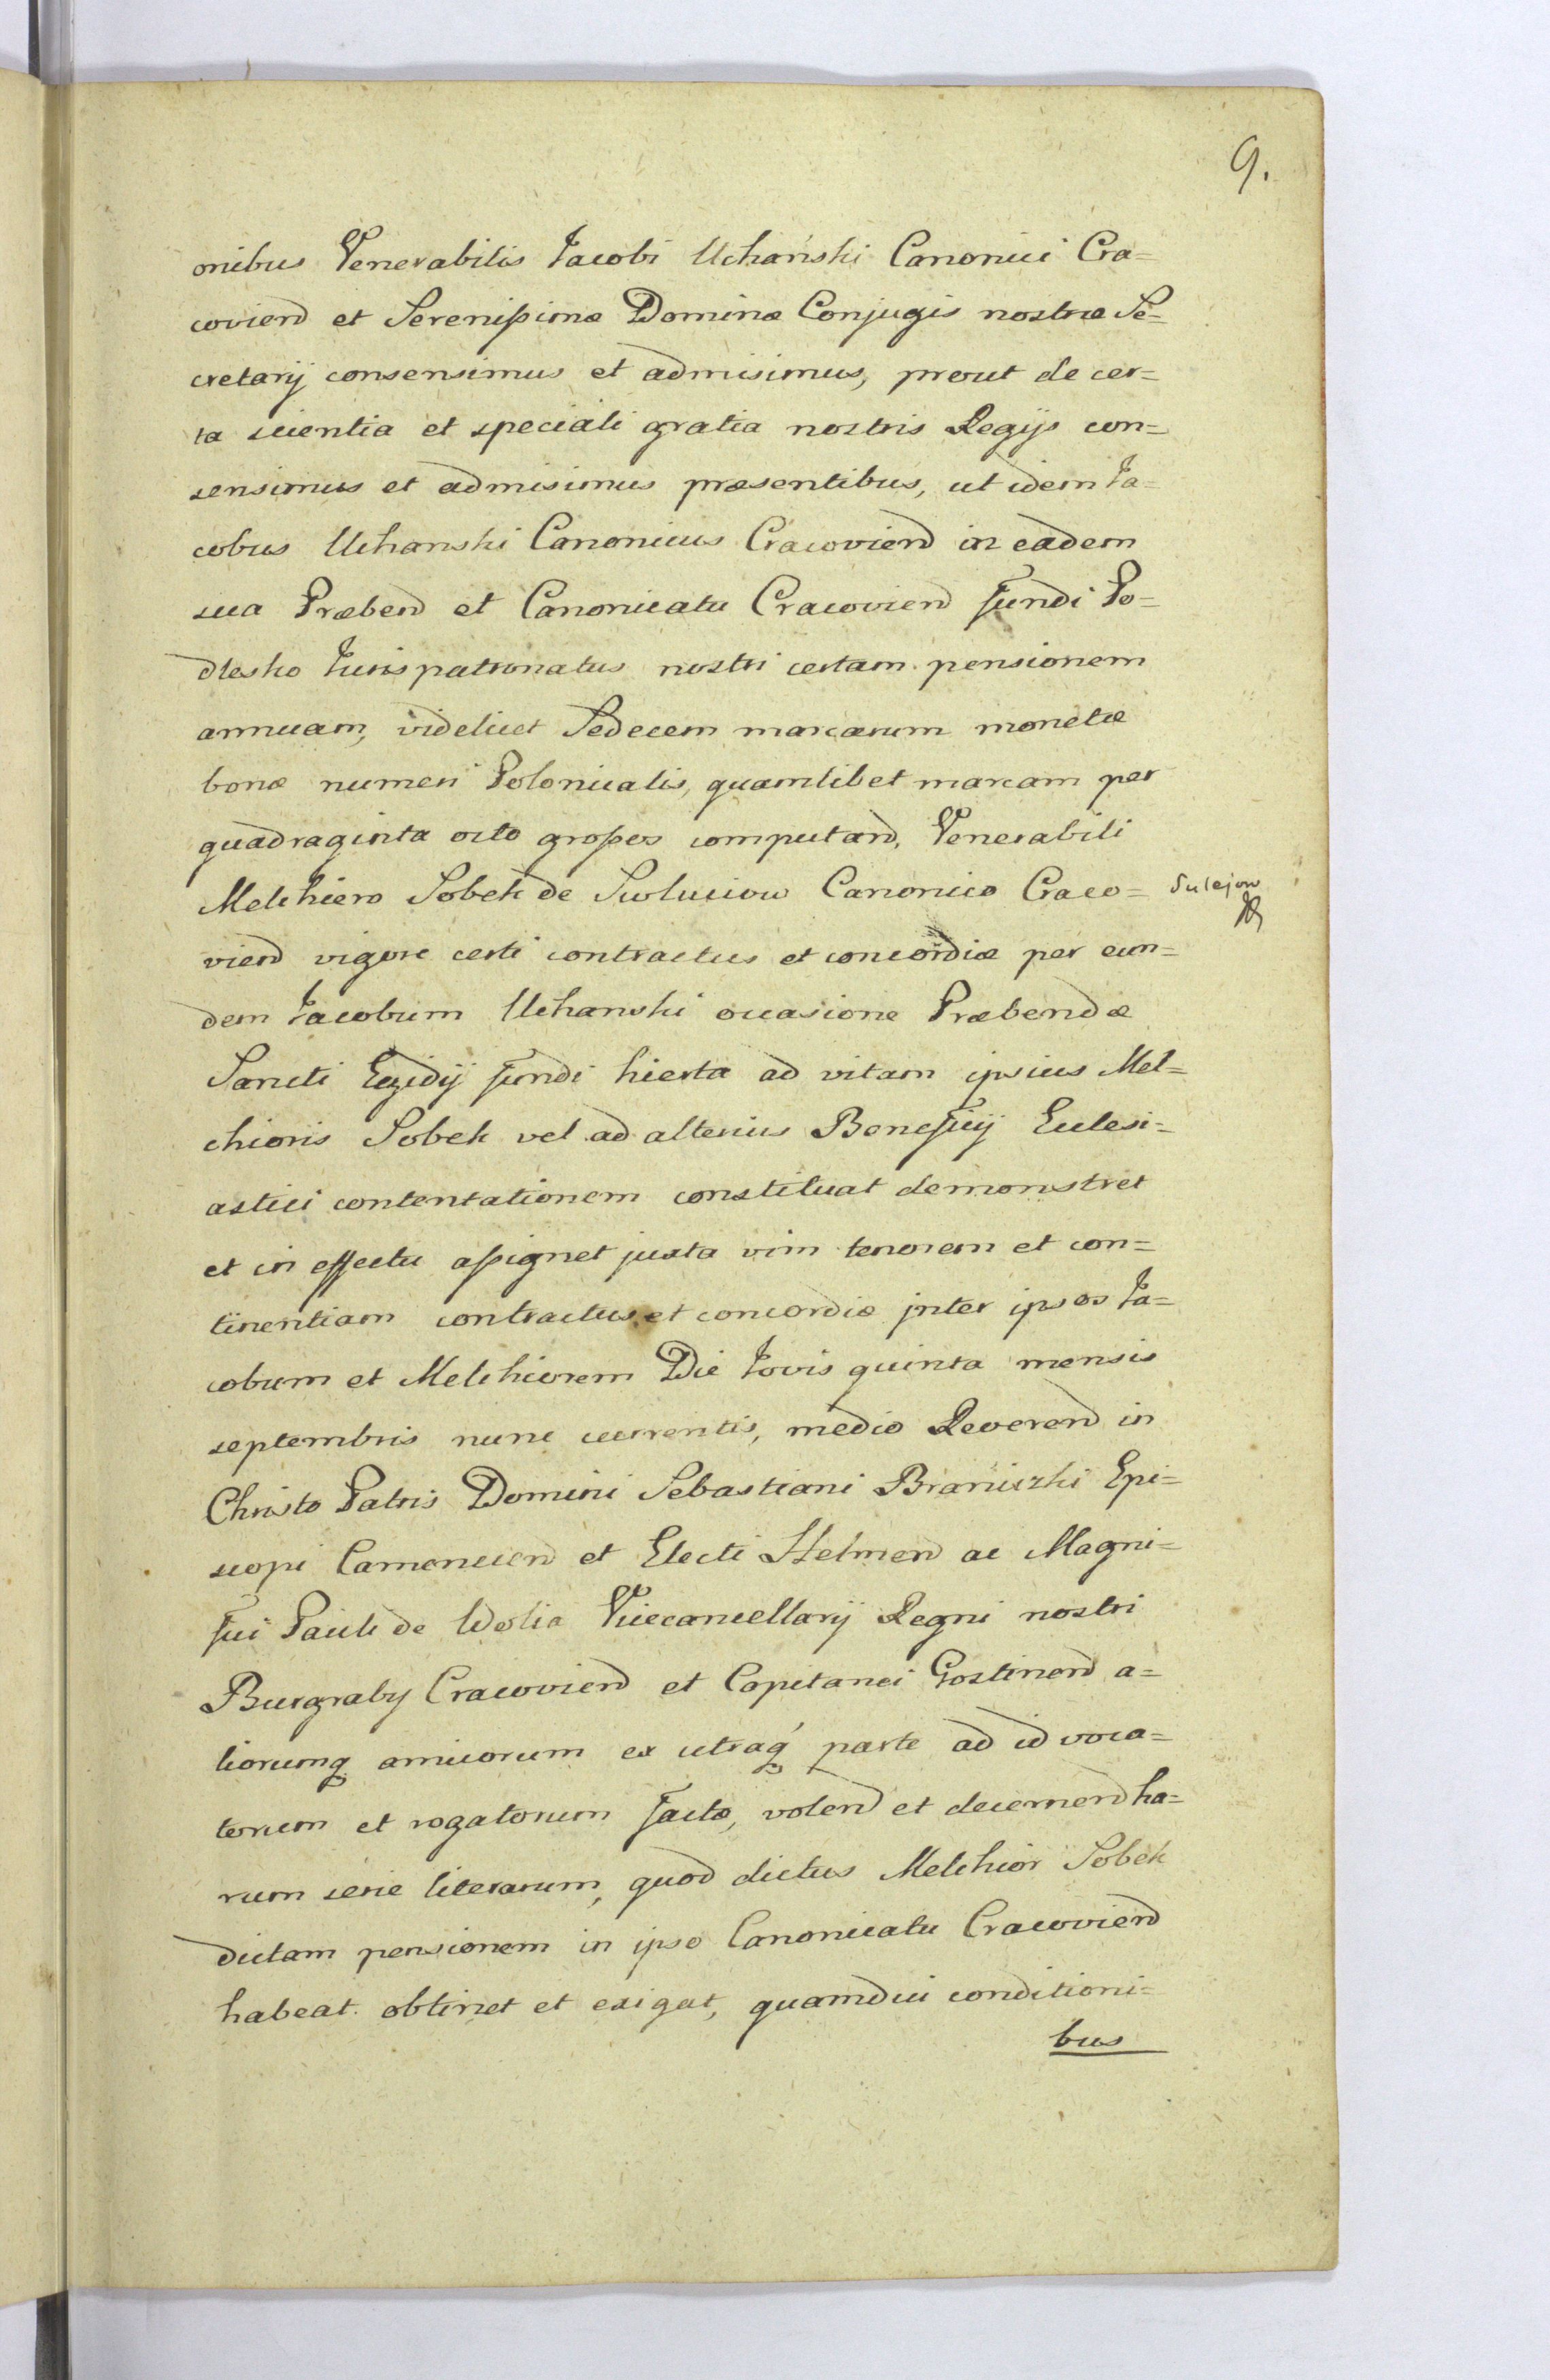 9.
onibus Venerabilis Jacobi Uchański Canonici Cra=
coviend et Serenißimæ Dominæ Conjugis nostræ Se=
cretarij consensimus et admisimus, prout de cer=
ta scientia et speciali gratia nostris Regijs con=
sensimus et admisimus præsentibus, ut idem Ja=
cobus Uchanski Canonicus Cracoviend in eadem
sua Præbend et Canonicatu Cracoviend fundi Po=
dlesko Jurispatronatus nostri certam pensionem
annuam, videlicet Sedecem marcarum monetæ
bonæ numeri Polonicalis, quamlibet marcam per
quadraginta octo großos computand, Venerabili
Melchiero Sobek de Swluciow Canonico Craco=
Sulejow
viend vigore certi contractus et concordiæ per eun=
dem Jacobum Uchanski occasione Præbendæ
Sancti Egidij fundi hiesta ad vitam ipsius Mel=
chioris Sobek vel ad alterius Beneficij Eclesi=
astici contentationem constituat demonstret
et in effectu aßignet juxta vim tenorem et con=
tinentiam contractus et concordiæ inter ipsos Ja=
cobum et Melchiorem Die Jovis quinta mensis
septembris nunc currentis, medio Reverend in
Christo Patris Domini Sebastiani Braniczki Epi=
scopi Camenecend et Electi Helmend ac Magni=
fici Pauli de Wolia Vicecancellarij Regni nostri
Burgraby Cracoviend et Capitanei Gostinend a=
liorumq amicorum ex utraq parte ad id voca=
torum et rogatorum facto, volend et decernend ha=
rum serie literarum, quod dictus Melchior Sobek
dictam pensionem in ipso Canonicatu Cracoviend
habeat obtinet et exigat, quamdiu conditioni=
bus